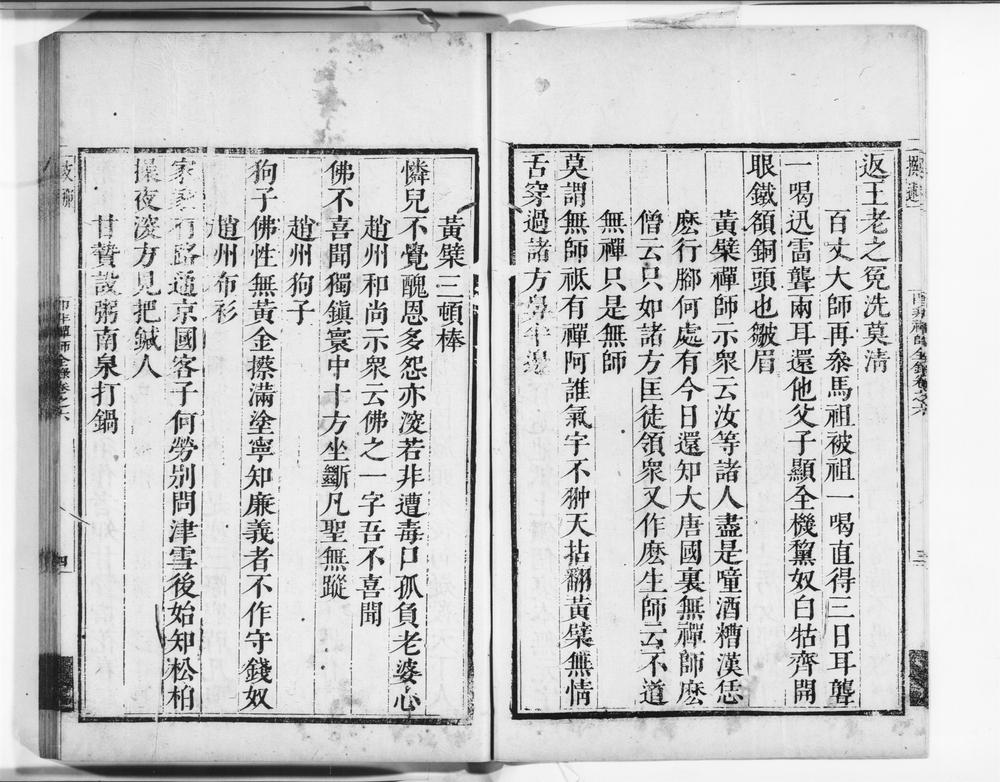 返王老之冤洗莫清
百丈大師再叅馬祖被祖一喝直得三日耳聾
一喝迅雷聾兩耳還他父子顯全機黧奴白牯齊開
眼鐵額銅頭也皺眉
黃檗禪師示衆云汝等諸人盡是噇酒糟漢恁
麽行腳何處有今日還知大唐國裏無禪師麽
僧云只如諸方匡徒領衆又作麽生師云不道
無禪只是無師
莫謂無師祇有禪阿誰氣宇不翀天拈翻黃檗無情
舌穿過諸方鼻半邊
黃檗三頓棒
憐兒不覺醜恩多怨亦深若非遭毒口孤負老婆心
趙州和尚示衆云佛之一字吾不喜聞
佛不喜聞獨鎭寰中十方坐斷凡聖無蹤
趙州狗子
狗子佛性無黃金攃滿塗寧知廉義者不作守錢奴
趙州布衫
家家有路通京國客子何勞别問津雪後始知松柏
操夜深方見把鍼人
甘贄設粥南泉打鍋